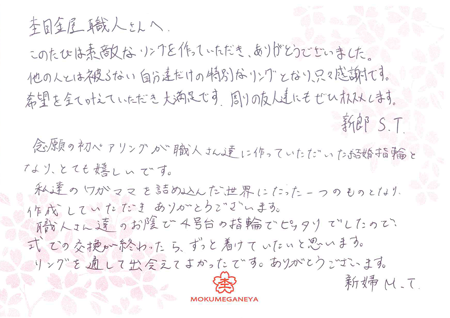 杢目金屋 職人さんへ
このたびは素敵なリングを作っていただき、ありがとうございました。
他の人とは被らない自分達だけの特別なリングとなり、只々感謝です。
希望を全て叶えていただき大満足です。周りの友人達にもぜひオススメします。
新郎 S.T.
念願の初ペアリングが職人さん達に作っていただいた結婚指輪と
なり、とても嬉しいです。
私達のワガママを詰め込んだ世界にたった一つのものとなり
作成していただきありがとうございます。
職人さん達のお陰で4号台の指輪でピッタリでしたので、
式での交換が終わったら、ずっと着けていたいと思います。
リングを通して出会えてよかったです。ありがとうございます。
新婦 M.T.
MOKUMEGANEYA